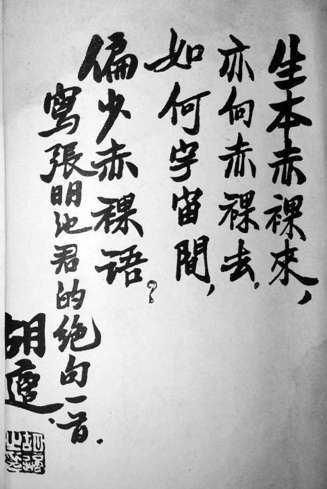 生本赤裸來，
亦向赤裸去。
如何宇宙間，
偏少赤裸語？
寫張明池君的绝句一首.
胡適